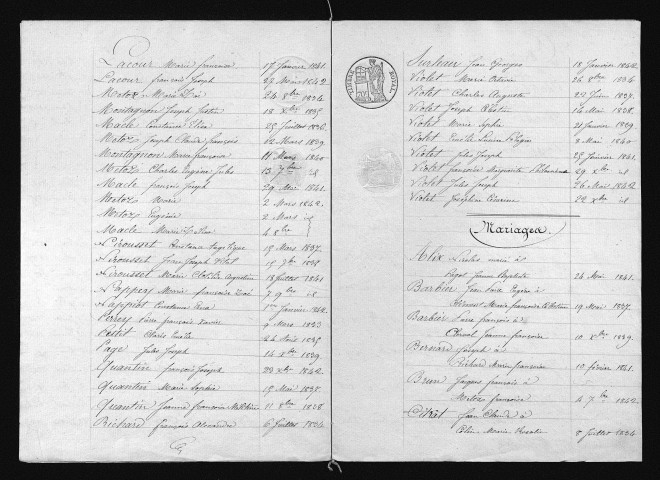 Lacour Marie françoise 17 Janvier 1841.
Lacour françois Joseph 29 Mars 1842
Metoz Marie 24 8bre 1834
Montagnon Joseph Justin 18 Xbre 1835
Macle Constance Elise 25 Juillet 1836
Metoz Joseph Claude françois 12 Mars 1839
Montagnon Marie françoise 11 Mars 1840
Metoz Charles Eugène Jules 13 7bre id
Macle françois Joseph 29 Mai 1841.
Metoz Marie 2 Mars 1842.
Metoz Eugénie 2 Mars id
Macle Marie 4 8bre
Pérousset Constance Angélique 15 Mars 1837.
Pérousset Joseph Vital 15 7bre 1838
Pérousset Marie Clotilde Augustine 18 Juillet 1841
Pappey Marie françoise 7 9bre id
Pappiot Constance 1er Janvier 1842.
Perrey françois Xavier 9 Mars 1833
Petit Claris Emile 24 Août 1835
Page Jules Joseph 14 Xbre 1839.
Quantin françois Joseph 23 Xbre 1842.
Quantin Marie Sophie 15 Mai 1838.
Quantin Jeanne françoise 11 8bre 1838
Richard françois Alexandre 6 Juillet 1834
TIMBRE ROYAL
Jean Georges 18 Janvier 1842.
Violet Marie 26 8bre 1834
Violet Charles Auguste 23 Juin 1837.
Violet Joseph Célestin 14 Mai 1838.
Violet Marie Sophie 21 Janvier 1839.
Violet Emile Lucien 8 Mai 1840
Violet Jules Joseph 25 Janvier 1841.
Violet françoise Marguerite Philomène 29 Xbre id
Violet Jules Joseph 26 Mai 1842
Violet Joséphine Césarine 22 Xbre id
Mariages.
Alix marié à
Jean Baptiste 24 Mai 1841.
Barbier Jean Eugène à
Marie françoise 19 Mai 1837.
Barbier Pierre françois à
Cheval Jeanne françoise 10 8bre 1839.
Bernard Joseph à
Richard Marie françoise 10 février 1841.
Brun Jacques françois à
Metoz françoise 4 7bre 1842
Citrat Jean Claude à
Marie 8 Juillet 1834